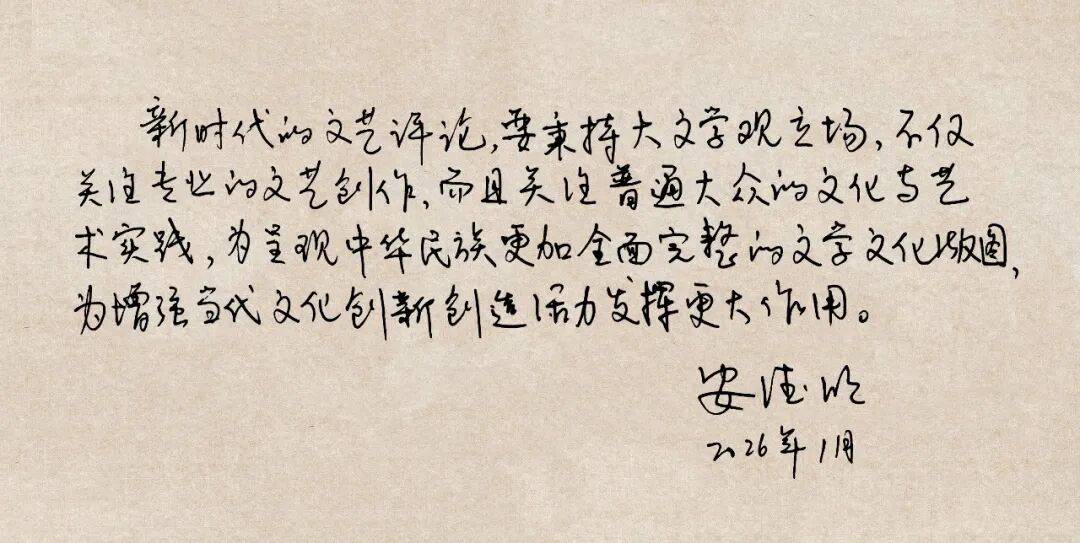 新时代的文艺评论,要秉持大文学观立场,不仅
关注专业的文艺创作,而且关注普通大众的文化与艺
术实践,为呈现中华民族更加全面完整的文学文化版图,
为增强当代文化创新创造活力发挥更大作用。
安德明
2026年1月